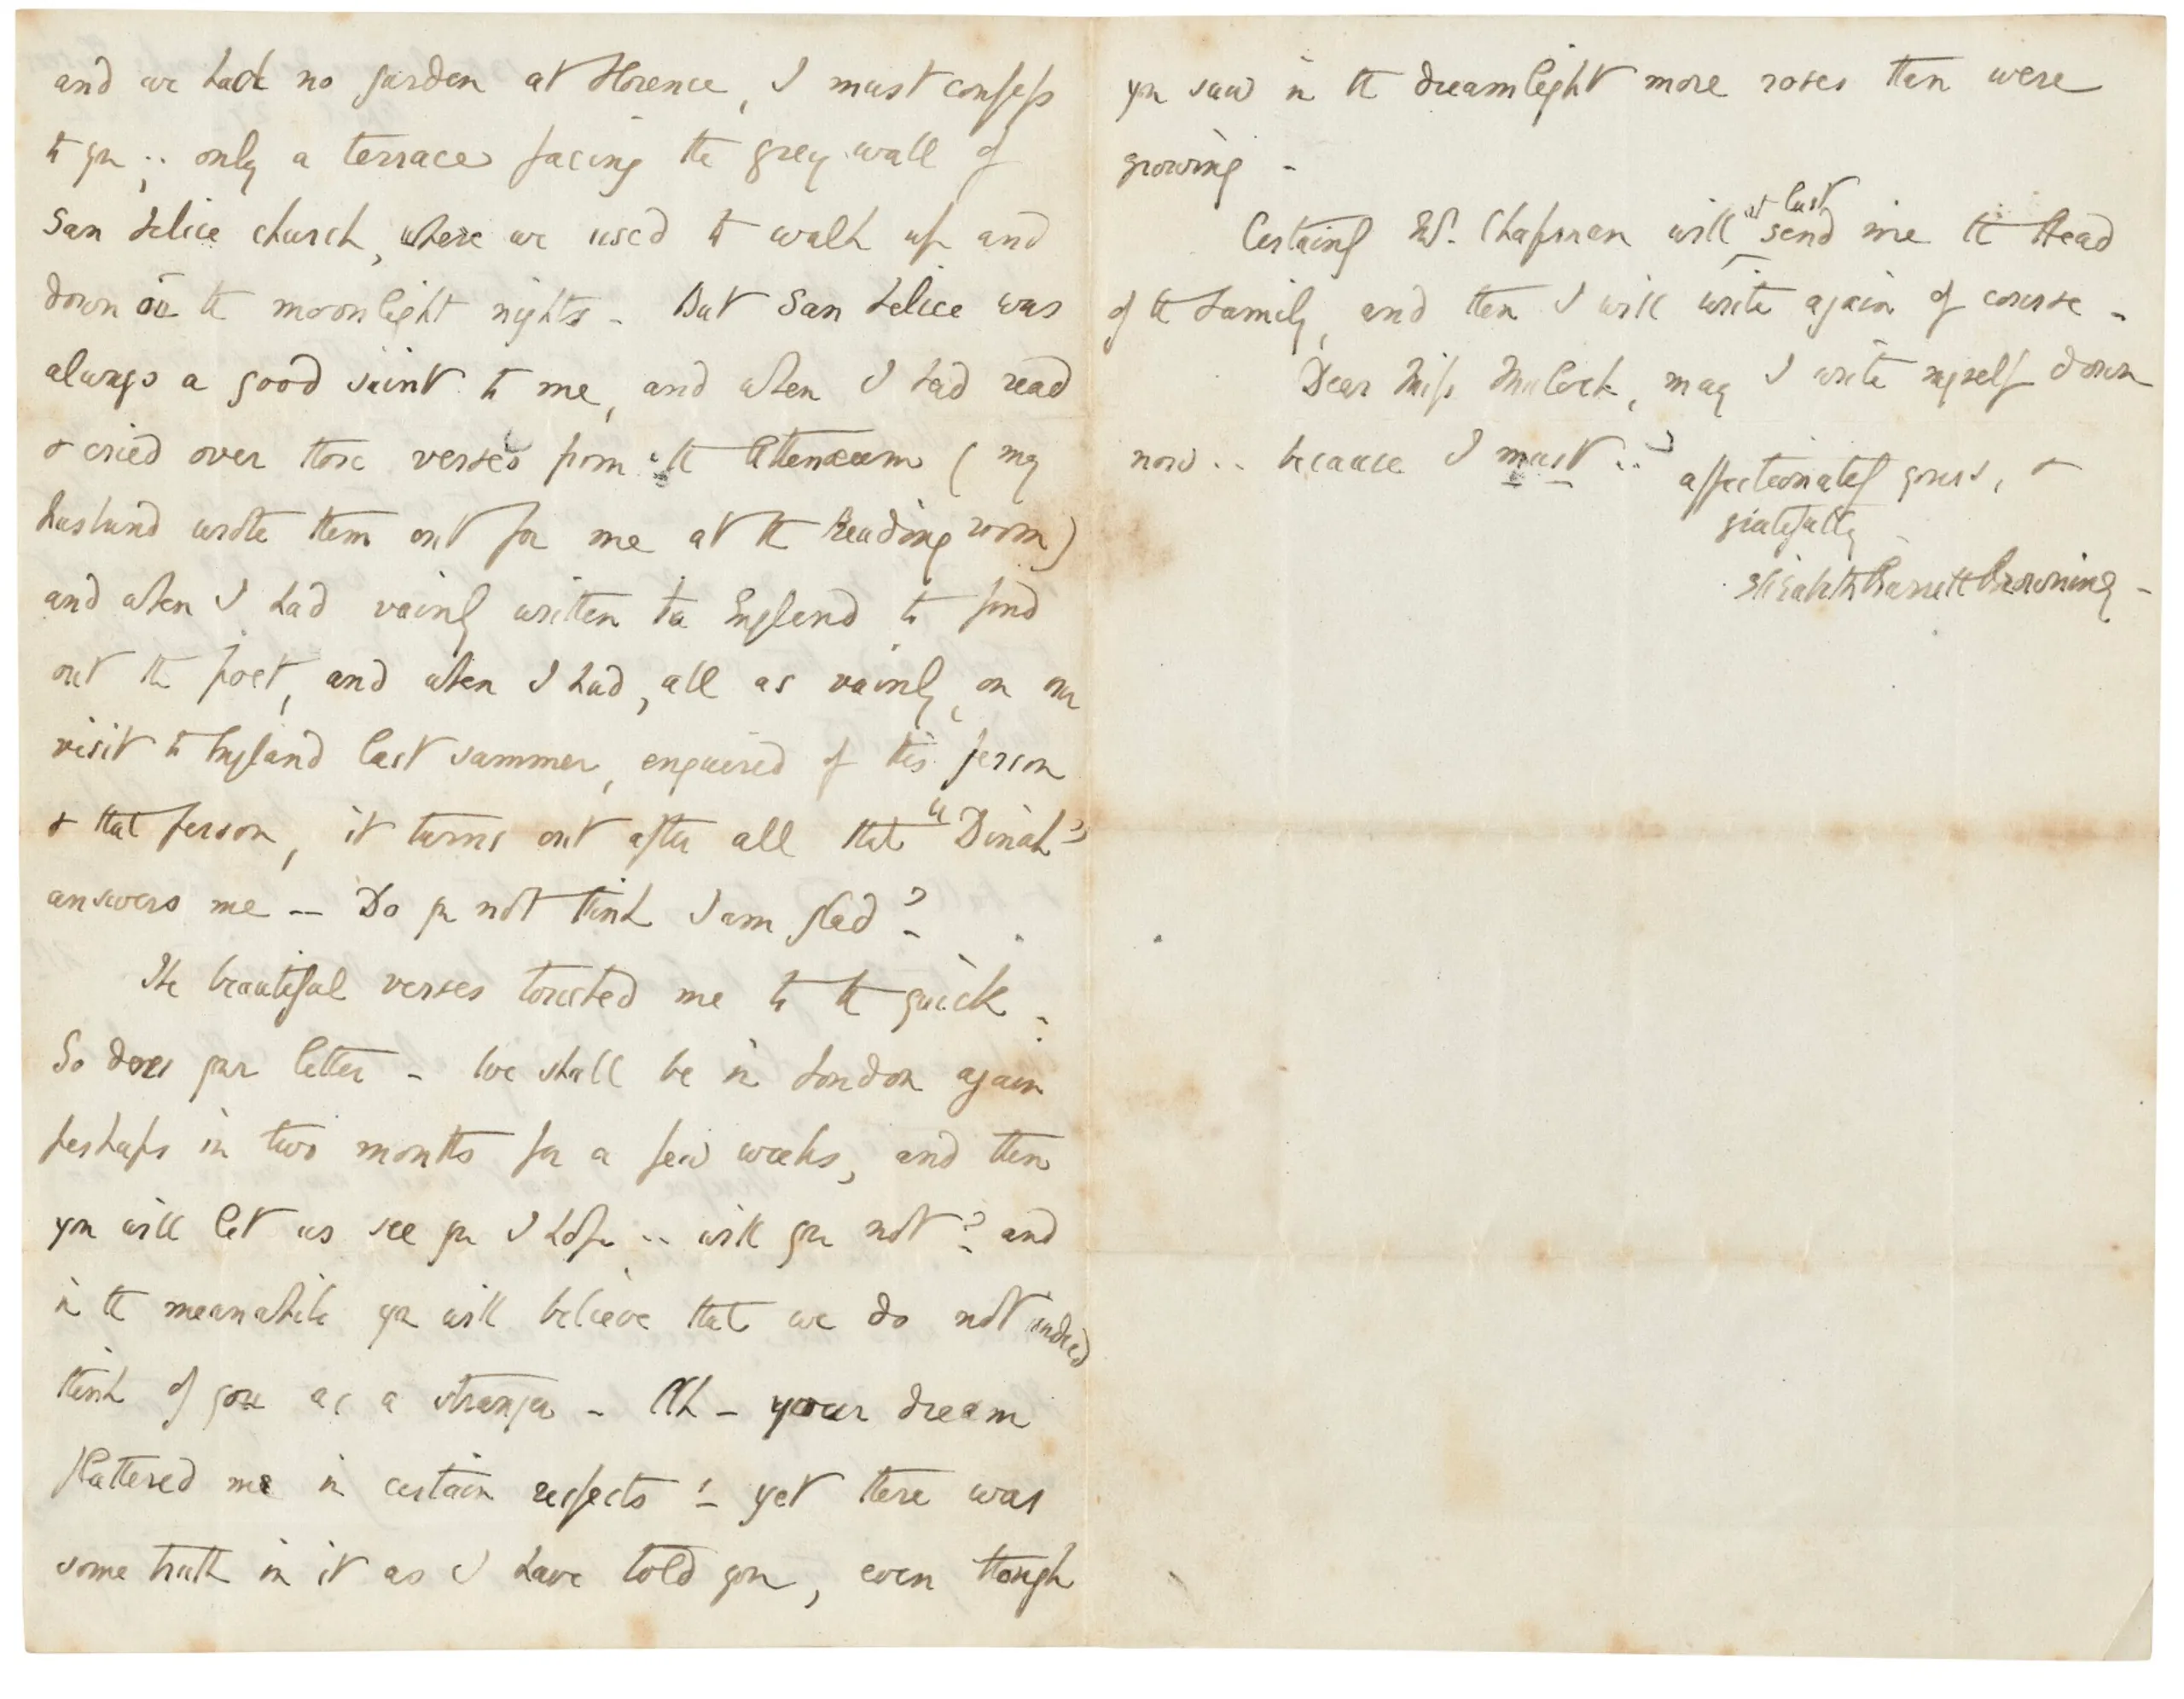 and we had no garden at Florence, I must confess
to you; .. only a terrace facing the grey wall of
San Felice church, where we used to walk up and
down on the moonlight nights - But San Felice was
always a good saint to me, and when I had read
& cried over those verses from the Athenæum (my
husband wrote them out for me at the Reading room)
and when I had vainly written to England to find
out the poet, and when I had, all as vainly, on our
visit to England last summer, enquired of this person
& that person, it turns out after all that "Dinah"
answers me — Do you not think I am glad?
The beautiful verses touched me to the quick -
So does your letter - We shall be in London again
perhaps in two months for a few weeks, and then
you will let us see you I hope .. will you not? and
in the meanwhile you will believe that we do not indeed
think of you as a stranger - Ah - your dream
flattered me in certain respects! - yet there was
some truth in it as I have told you, even though
you saw in the dreamlight more roses than were
growing -
Certainly Mr. Chapman will at last send me the Head
of the Family, and then I will write again of course -
Dear Miss Mulock, may I write myself down
now .. because I must ..
affectionately yours, &
gratefully
Elizabeth Barrett Browning -